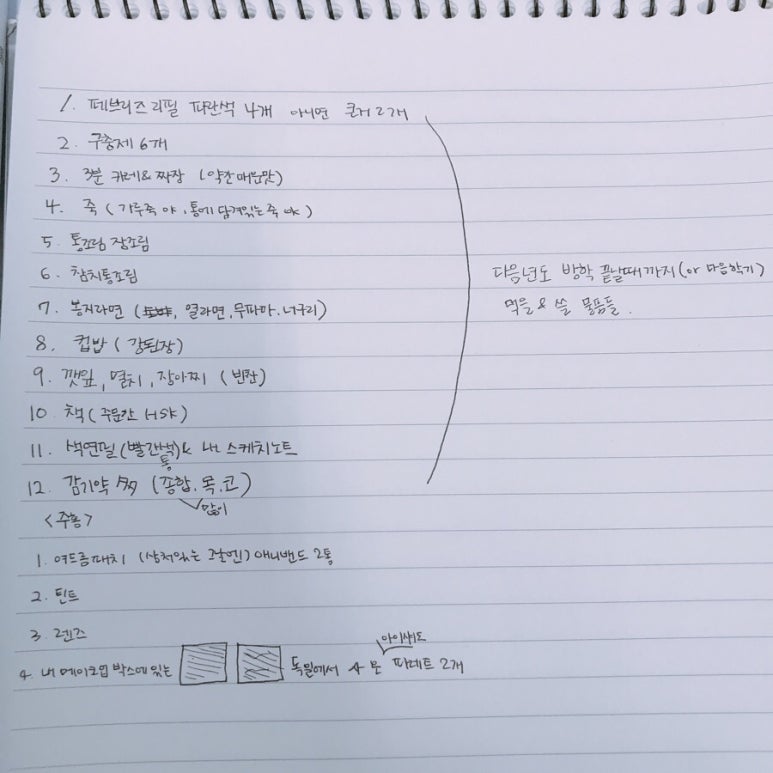 1. 페브리즈 리필 파란색 4개 아니면 큰거 2개
2. 구충제 6개
3. 3분 카레&짜장 (약간매운맛)
4. 죽 (가루죽 야, 통에 담겨있는 죽 ok)
5. 통조림 장조림
6. 참치통조림
7. 봉지라면 (열라면, 무파마, 너구리)
8. 컵밥 (강된장)
9. 깻잎, 멸치, 장아찌 (반찬)
10 책 (주문한 HSK)
11. 색연필 (빨간색) & 내 스케치노트
통
12. 감기약 (종합, 목, 코)
많이
다음년도 방학 끝날때까지 (or 다음학기)
먹을 & 쓸 물품들.
<주용>
1. 여드름패치 (상처있는 곳엔) 애니밴드 2통
2. 틴트
3. 렌즈
아이섀도
4. 내 메이크업 박스에 있는 독일에서 산 팔레트 2개